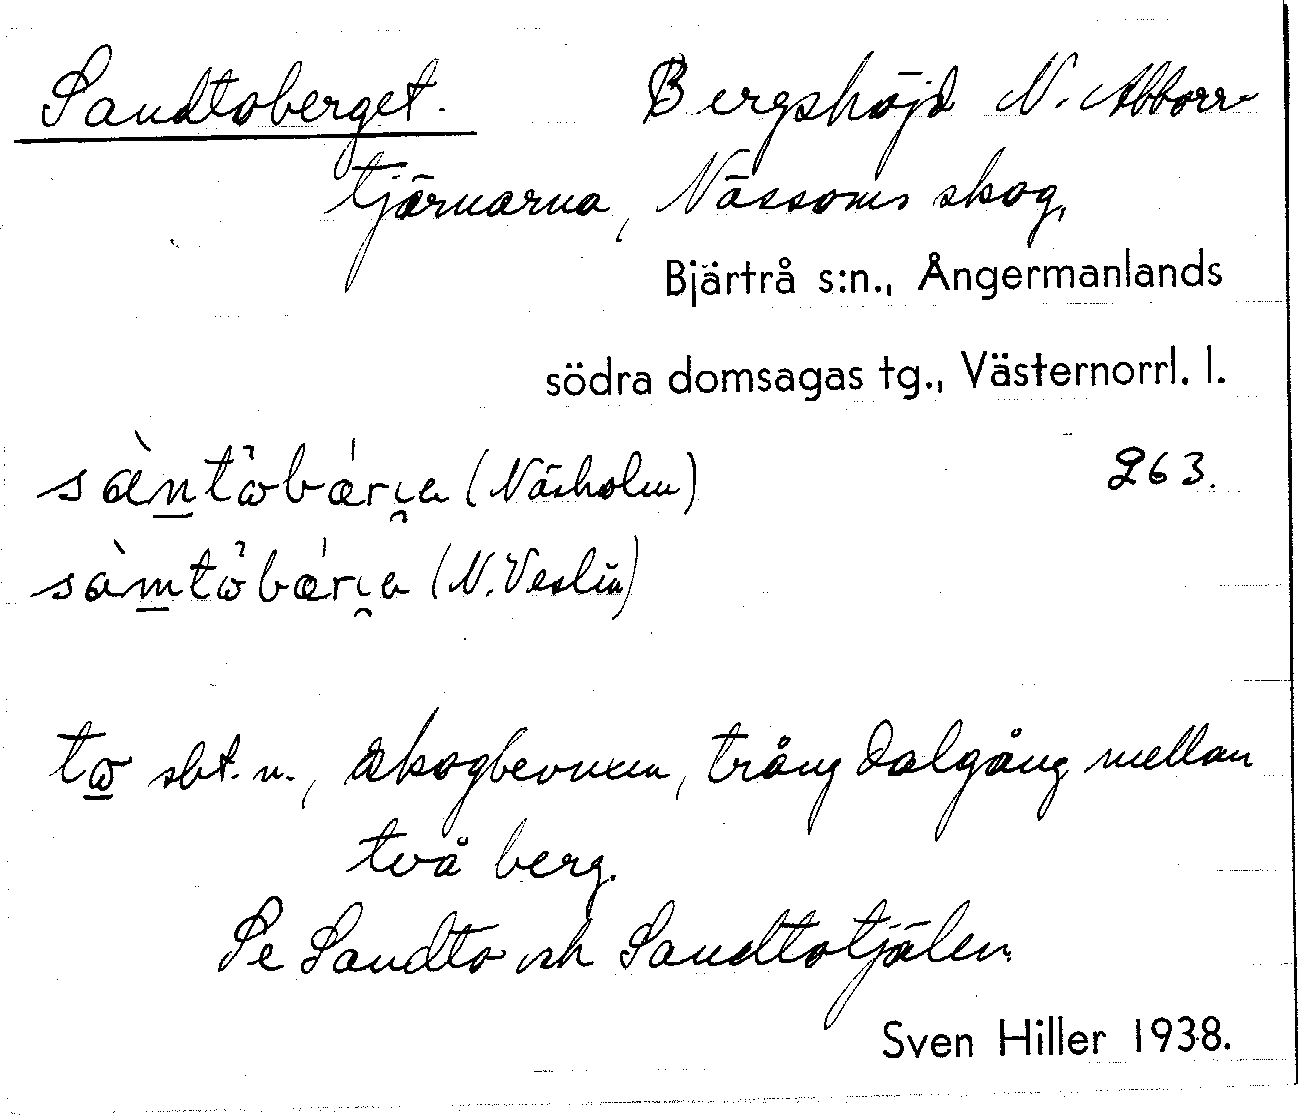 Sandtoberget. Bergshöjd N. Abborr-
tjärnarna, Nässoms skog,
Bjärtrå s:n., Ångermanlands
södra domsagas tg., Västernorrl. l.
(Näsholm) 263.
(N. Veslin)
to sbt. n., skogbevuxen, trång dalgång mellan
två berg.
Se Sandto och Sandtotjälen.
Sven Hiller 1938.